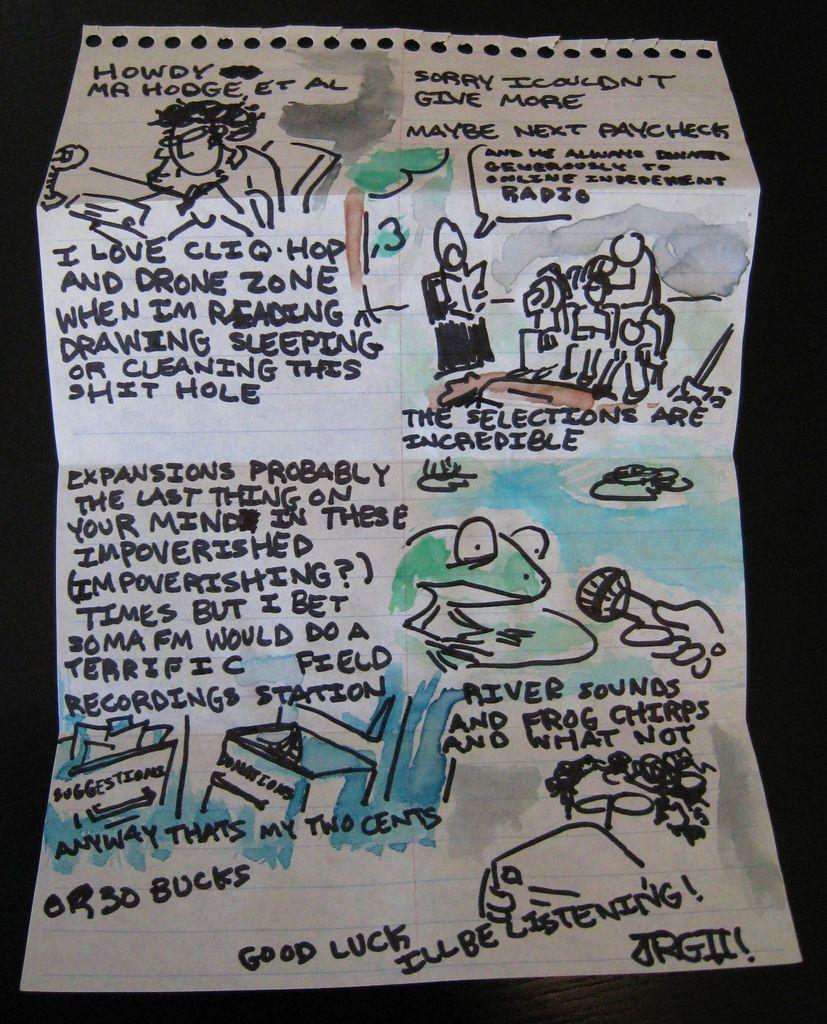 HOWDY
MR HODGE, ET AL
SORRY I COULDN'T
GIVE MORE
MAYBE NEXT PAYCHECK
AND HE ALWAYS DONATED
GENEROUSLY TO
ONLINE INDEPENDENT
RADIO
I LOVE CLIQ-HOP
AND DRONE ZONE
WHEN IM READING
DRAWING SLEEPING
OR CLEANING THIS
SHIT HOLE
THE SELECTIONS ARE
INCREDIBLE
EXPANSIONS PROBABLY
THE LAST THING ON
YOUR MIND IN THESE
IMPOVERISHED
(IMPOVERISHING?)
TIMES BUT I BET
SOMA FM WOULD DO A
TERRIFIC FIELD
RECORDINGS STATION
RIVER SOUNDS
AND FROG CHIRPS
AND WHAT NOT
SUGGESTIONS
DONATIONS
ANYWAY THATS MY TWO CENTS
OR 30 BUCKS
GOOD LUCK
I'LL BE LISTENING!
JRGII!